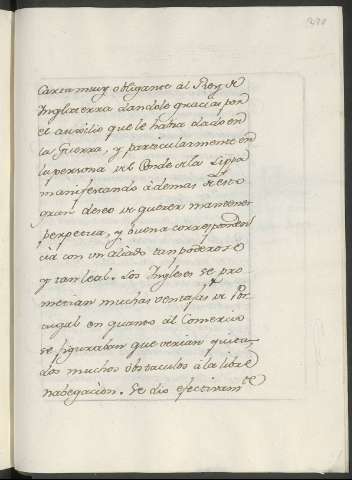 Carta muy obligante al Rey de
Inglaterra dandole gracias por
el auxilio que le havia dado en
la Guerra, y particularmente en
la persona del Conde de la Lippa
manifestando ádemas de esto
gran deseo de querer mantener
perpetua, y buena corresponden
cia con un aliado tan poderoso
y tan leal. Los Ingleses se pro
metian muchas ventajas de Por
tugal en quanto al Comercio
se figuraban que verian quita
dos muchos obstaculos á la libre
nabegacion. Se dio efectivam.te